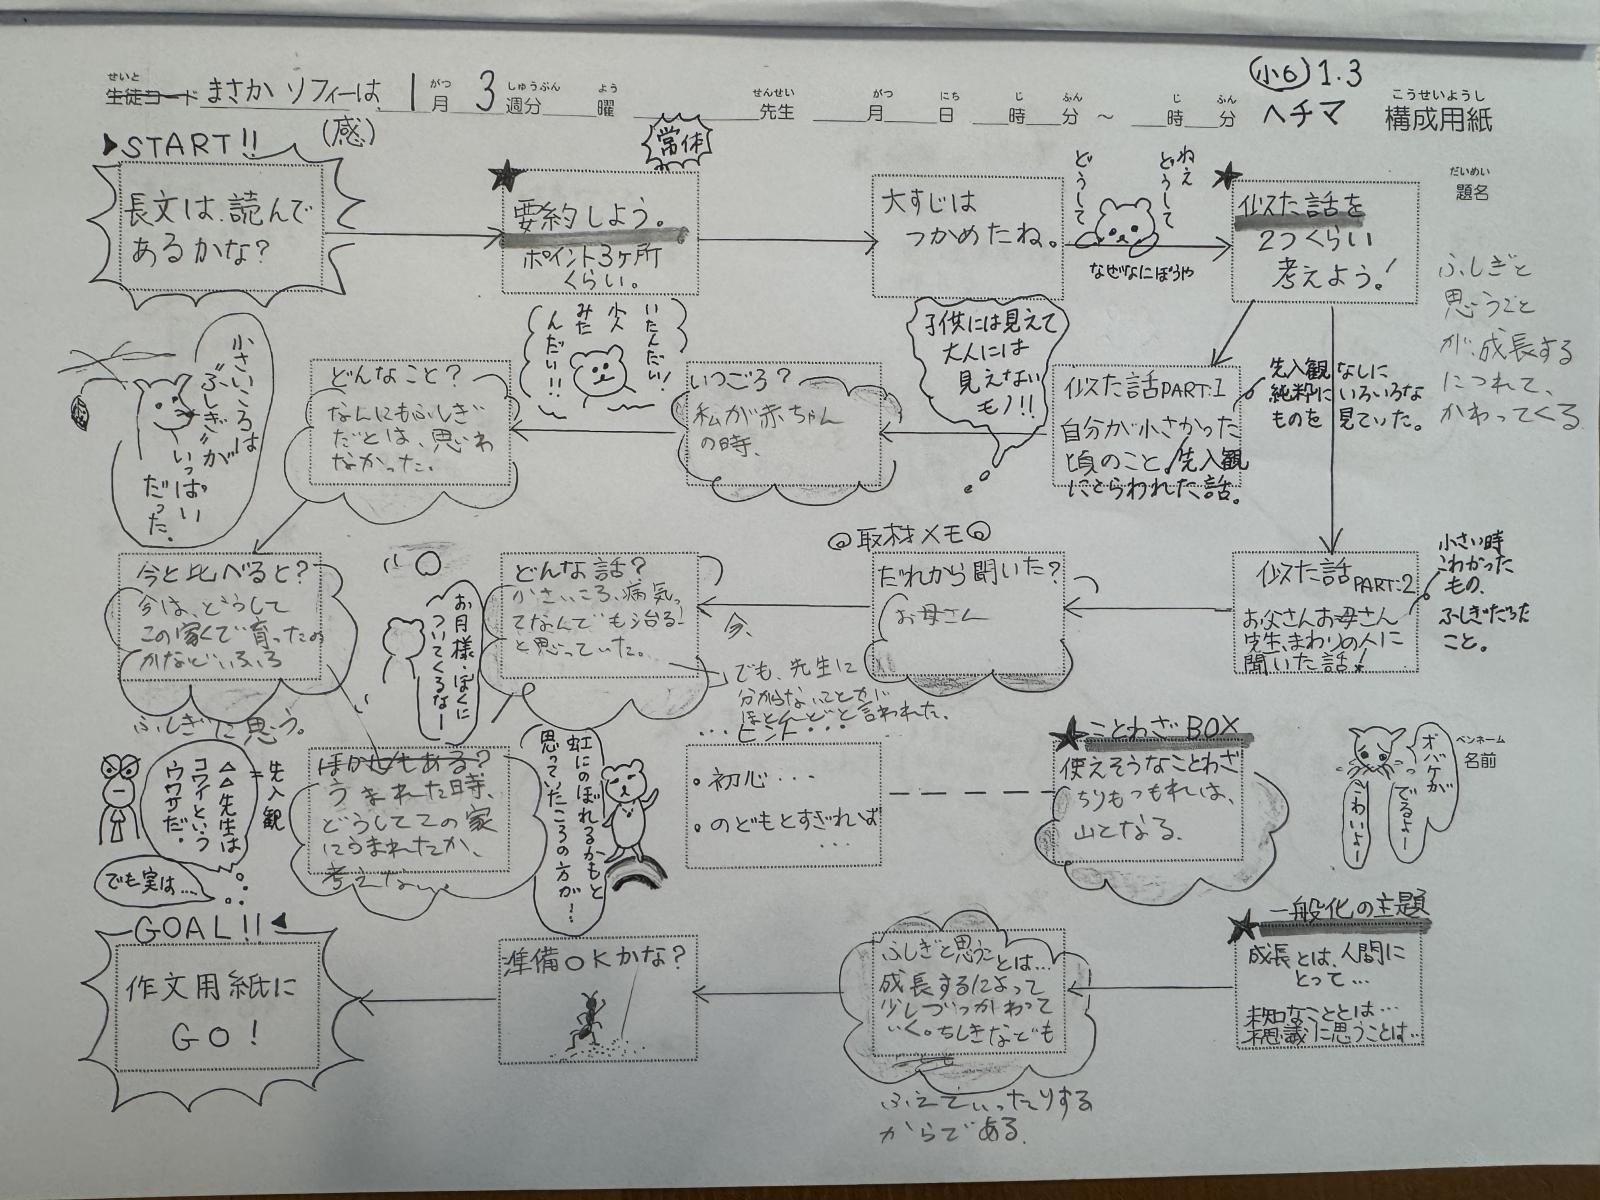 せいと
生徒コード まさか ソフィーは、 1月 3週分 曜 先生 月 日 時 分 ～ 時 分
がつ しゅうぶん よう せんせい がつ にち じ ふん じ ふん
小6 1.3
ヘチマ
こうせいようし
構成用紙
(感)
常体
START!!
長文は、読んで
あるかな?
★
要約しよう。
ポイント3ヶ所
くらい。
大すじは
つかめたね。
ねえ
どうして
どうして
なぜなにぼうや
★
似た話を
2つくらい
考えよう!
だいめい
題名
ふしぎと
思うこと
が、成長する
につれて、
かわってくる
似た話PART:1
自分が小さかった
頃のこと、先入観
にとらわれた話。
先入観なしに
純粋にいろいろな
ものを見ていた。
子供には見えて
大人には
見えない
モノ!!
いつごろ?
私が赤ちゃん
の時、
いたんだい!
みた
んだい!!
どんなこと?
なんにもふしぎ
だとは、思わ
なかった。
小さいころは
"ふしぎ"が
いっぱい
だった。
今と比べると?
今は、どうして
この家で育ったの
かなどいろいろ
ふしぎに思う。
ほかにもある?
うまれた時、
どうしてこの家
にうまれたか、
考えない。
似た話PART:2
お父さんお母さん
先生、まわりの人に
聞いた話!
小さい時
こわかった
もの、
ふしぎだった
こと。
◎取材メモ◎
だれから聞いた?
お母さん
どんな話?
小さいころ、病気っ
てなんでも治る!
と思っていた。
今、
でも、先生に
分からないことが
ほとんどと言われた。
お月様・ぼくに
ついてくるなー
虹にのぼれるかもと
思っていたころの方が!
★ことわざBOX
使えそうなことわざ
ちりもつもれば、
山となる。
・・・ヒント・・・
・初心・・・
・のどもとすぎれば
・・・
ペンネーム
名前
オバケが
でるよー
こわいよー
先入観
△△先生は
コワイという
ウワサだ。
でも実は…
★一般化の主題
成長とは、人間に
とって…
未知なこととは…
不思議に思うことは…
ふしぎと思うことは…
成長するによって
少しづつかわって
いく。ちしきなども
ふえていったりする
からである。
準備OKかな?
GOAL!!
作文用紙に
GO!